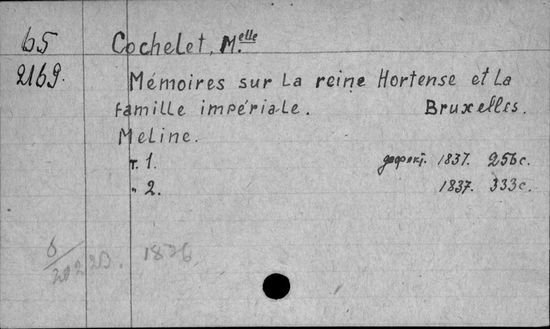 65
2169.
Cochelet, M.elle
Mémoires sur la reine Hortense et la
famille impériale. Bruxelles.
Meline.
т. 1. 1837. 256 с.
" 2. 1837. 333 с.
6/2022В. 1836